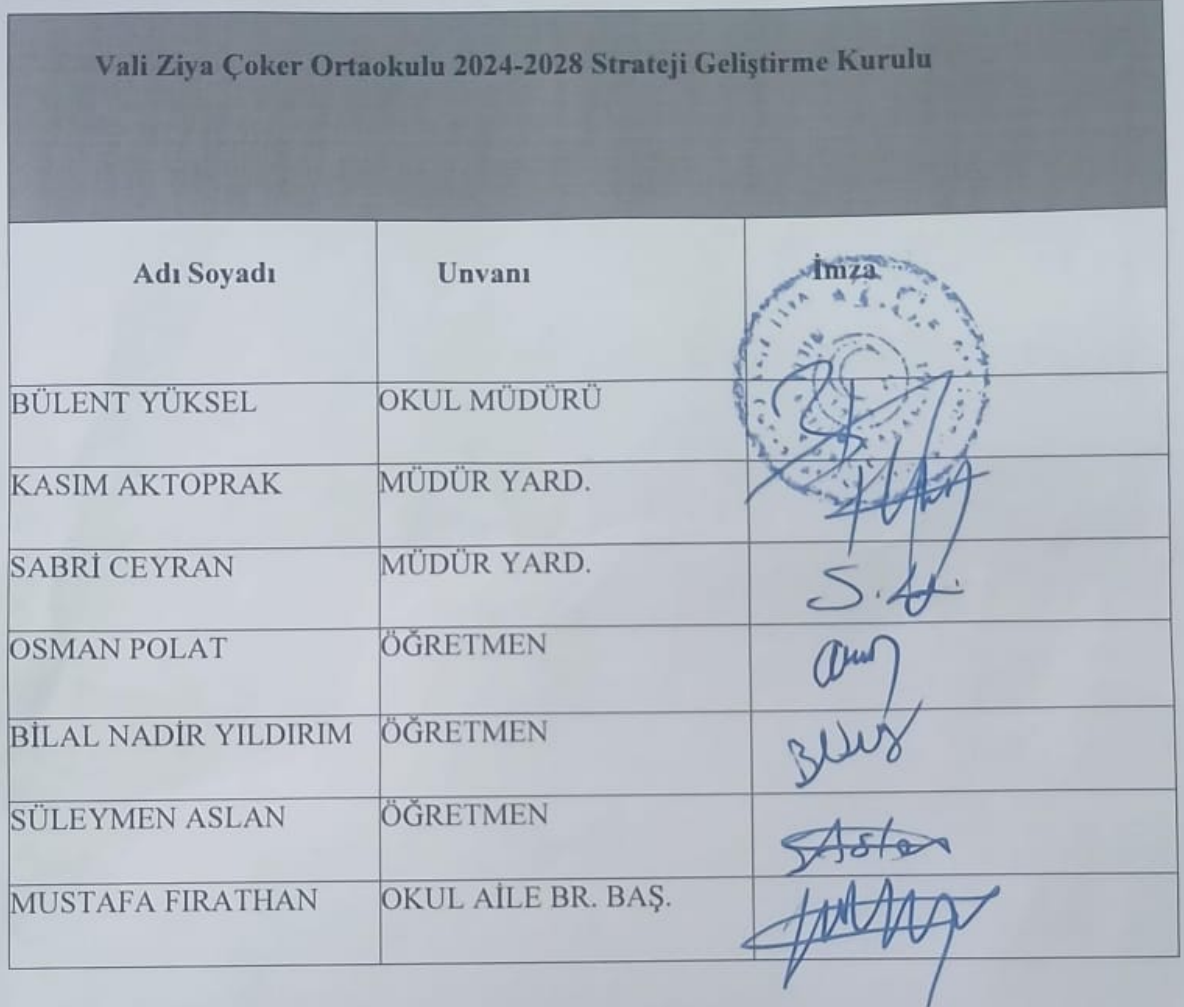 Vali Ziya Çoker Ortaokulu 2024-2028 Strateji Geliştirme Kurulu
Adı Soyadı Unvanı İmza
BÜLENT YÜKSEL OKUL MÜDÜRÜ
KASIM AKTOPRAK MÜDÜR YARD.
SABRİ CEYRAN MÜDÜR YARD.
OSMAN POLAT ÖĞRETMEN
BİLAL NADİR YILDIRIM ÖĞRETMEN
SÜLEYMEN ASLAN ÖĞRETMEN
MUSTAFA FIRATHAN OKUL AİLE BR. BAŞ.